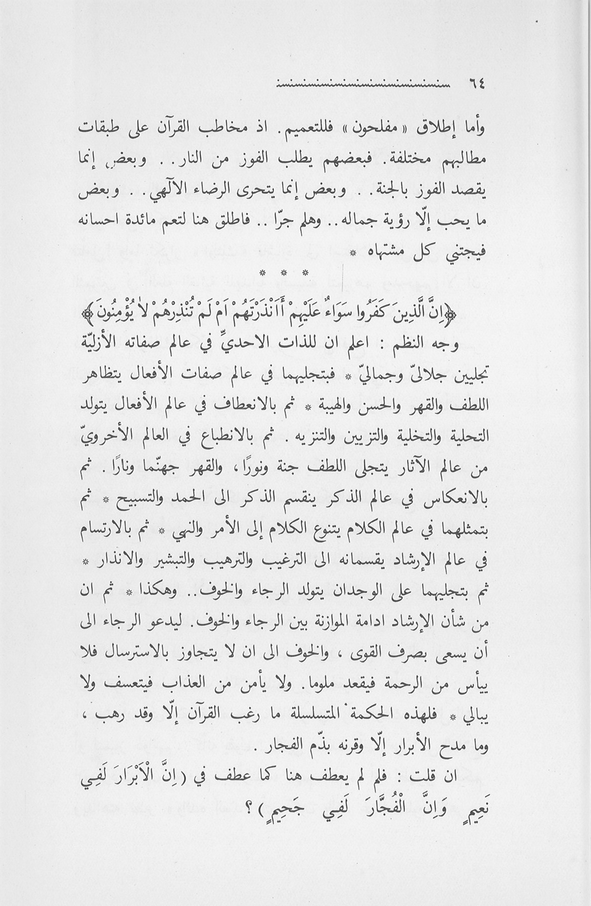 ٦٤
وأما إطلاق « مفلحون » فللتعميم. اذ مخاطب القرآن على طبقات
مطالبهم مختلفة. فبعضهم يطلب الفوز من النار.. وبعض إنما
يقصد الفوز بالجنة.. وبعض إنما يتحرى الرضاء الآلهي.. وبعض
ما يحب إلّا رؤية جماله.. وهلم جرّا.. فاطلق هنا لتعم مائدة احسانه
فيجتني كل مشتهاه *
* * *
﴿اِنَّ الَّذِينَ كَفَرُوا سَوَاءٌ عَلَيْهِمْ أَاَنْذَرْتَهُمْ اَمْ لَمْ تُنْذِرْهُمْ لاَ يُؤْمِنُونَ﴾
وجه النظم : اعلم ان للذات الاحديِّ في عالم صفاته الأزليّة
تجليين جلاليّ وجماليّ * فبتجليهما في عالم صفات الأفعال يتظاهر
اللطف والقهر والحسن والهيبة * ثم بالانعطاف في عالم الأفعال يتولد
التحلية والتخلية والتزيين والتنزيه . ثم بالانطباع في العالم الأخرويّ
من عالم الآثار يتجلى اللطف جنة ونورًا، والقهر جهنّما ونارًا . ثم
بالانعكاس في عالم الذكر ينقسم الذكر الى الحمد والتسبيح * ثم
بتمثلهما في عالم الكلام يتنوع الكلام إلى الأمر والنهي * ثم بالارتسام
في عالم الإرشاد يقسمانه الى الترغيب والترهيب والتبشير والانذار *
ثم بتجليهما على الوجدان يتولد الرجاء والخوف.. وهكذا * ثم ان
من شأن الإرشاد ادامة الموازنة بين الرجاء والخوف. ليدعو الرجاء الى
أن يسعى بصرف القوى ، والخوف الى ان لا يتجاوز بالاسترسال فلا
ييأس من الرحمة فيقعد ملوما. ولا يأمن من العذاب فيتعسف ولا
يبالي * فلهذه الحكمة المتسلسلة ما رغب القرآن إلّا وقد رهب ،
وما مدح الأبرار إلّا وقرنه بذّم الفجار .
ان قلت : فلم لم يعطف هنا كما عطف في (اِنَّ الْاَبْرَارَ لَفِي
نَعِيمٍ وَاِنَّ الْفُجَّارَ لَفِي جَحِيمٍ) ؟